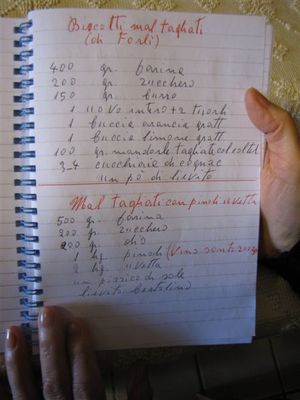 Biscotti mal tagliati
(di Forlì)
400 gr. farina
200 gr. zucchero
150 gr. burro
1 uovo intero + 2 tuorli
1 buccia arancia gratt.
1 buccia limone gratt.
100 gr. mandorle tagliate col coltel
3-4 cucchiaie di cognac
un pò di lievito
Mal tagliati con pinoli uvetta
500 gr. farina
200 gr. zucchero
200 gr. olio
1 hg. pinoli (Vino santo
2 hg. uvetta
un pizzico di sale
lievito Bertolino